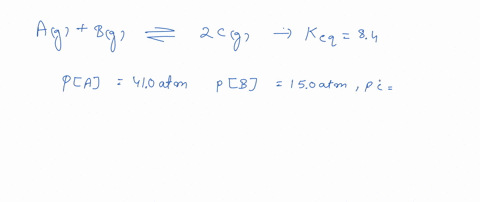 A(g) + B(g) ⇌ 2C(g) → Keq = 8.4
P[A] = 41.0 atm P[B] = 15.0 atm, Pi =